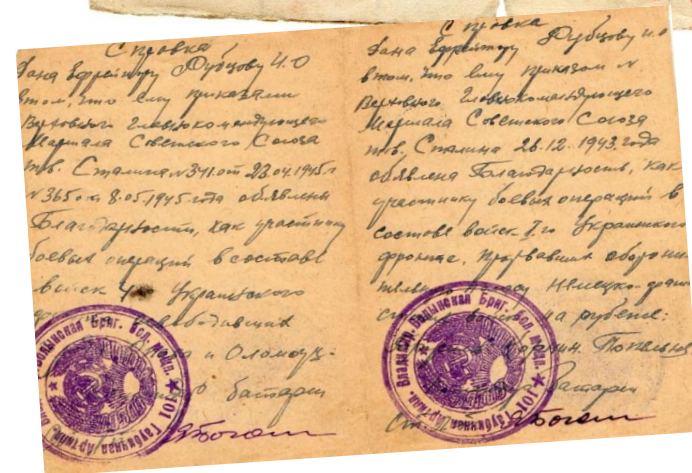 Справка
Дана Ефрейтору Рубцову И.О
в том, что ему приказами
Верховного Главнокомандующего
Маршала Советского Союза
тов. Сталина. N341 от 23.04.1945г
N365 от 8.05.1945 года объявлены
Благодарности, как участнику
боевых операций в составе
войск 4 Украинского
и Оломоуц-
батареи
Справка
Дана Ефрейтору Рубцову И.О
в том, что ему приказом N
Верховного Главнокомандующего
Маршала Советского Союза
тов. Сталина 26.12.1943 года
объявлена Благодарность, как
участнику боевых операций в
составе войск I-го Украинского
фронта, прорвавших оборони-
тельную полосу Немецко-
на рубеже:
батареи
Ст.
101 Гаубичная Артил. Владимир. Волынская Бриг. Бол. мощн.